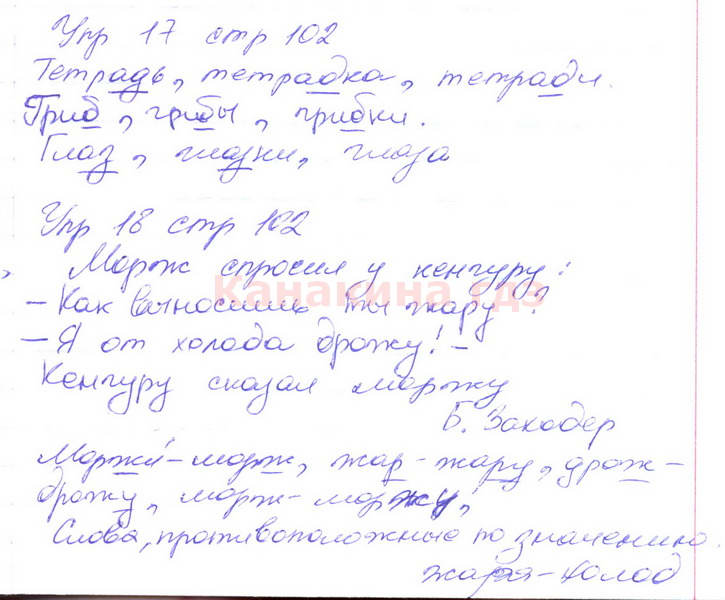 Упр 17 стр 102
Тетрадь, тетрадка, тетради.
Гриб, грибы, грибки.
Глаз, глазки, глаза
Упр 18 стр 102
Морж спросил у кенгуру:
Канакина гдз
- Как выносишь ты жару?
- Я от холода дрожу! -
Кенгуру сказал моржу
Б. Заходер
Моржи - морж, жар - жару, дрож -
дрожу, морж - моржу,
Слова, противоположные по значению.
жара - холод